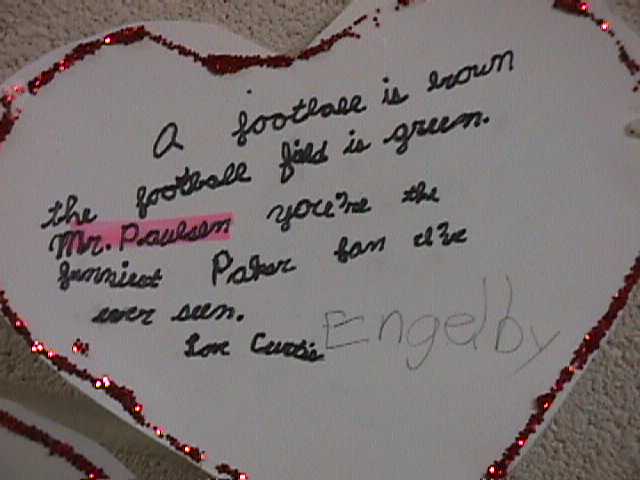 A football is brown
the football field is green.
Mr. Paulsen you're the
funniest Paker fan I've
ever seen.
Love Curtis Engelby